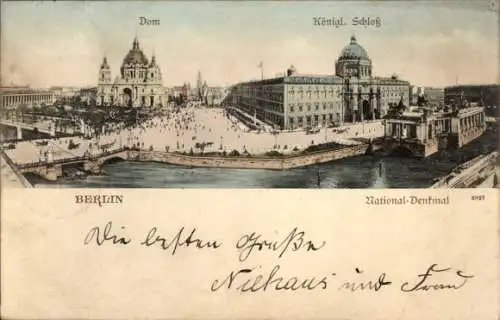 Dom
Königl. Schloß
BERLIN
National-Denkmal
Die besten Grüße
Niehaus und Frau